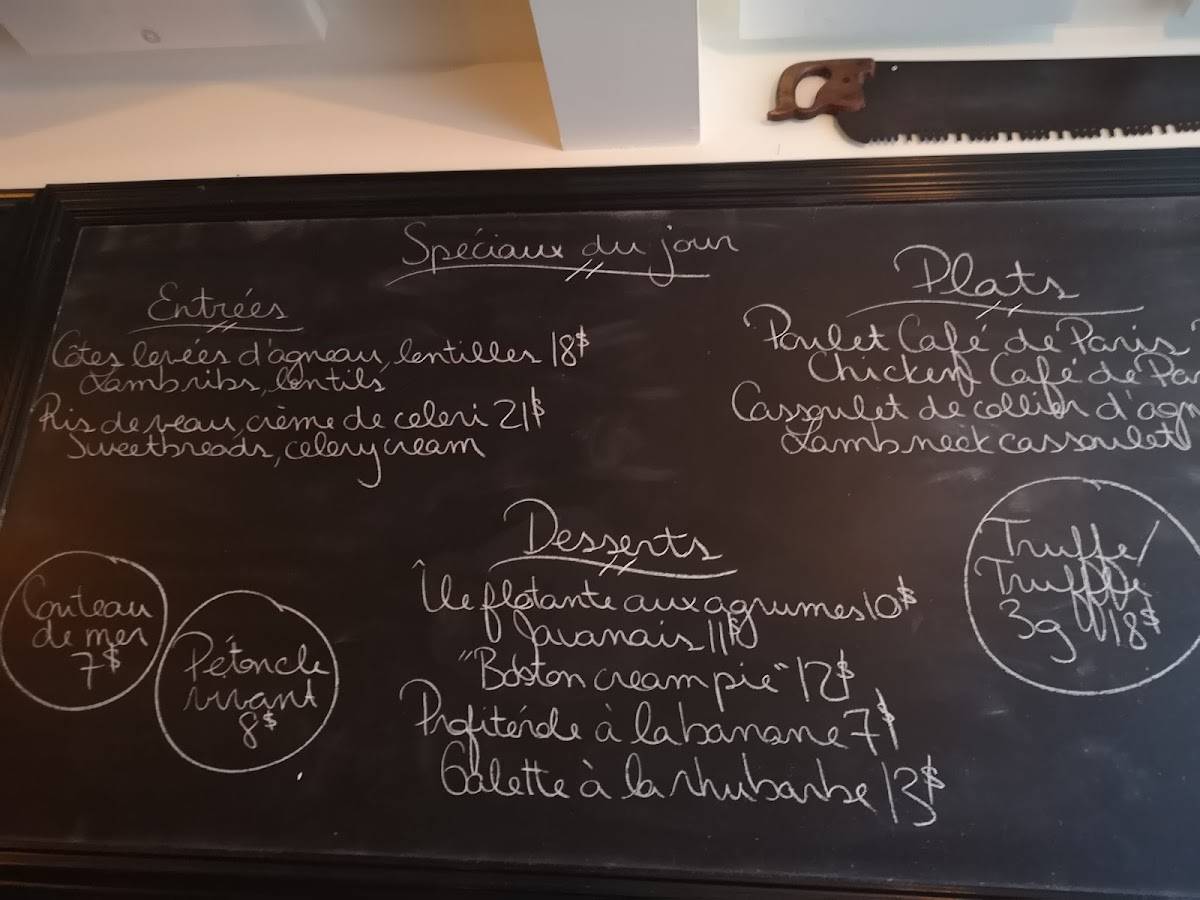 Spéciaux du jour
Entrées
Côtes levées d'agneau, lentilles 18$
Lamb ribs, lentils
Ris de veau, crème de celeri 21$
Sweetbreads, celery cream
Plats
Poulet Café de Paris
Chicken Café de Par
Cassoulet de collier d'agn
Lamb neck cassoulet
Truffe/
Truffle
3g 18$
Couteau
de mer
7$
Pétoncle
vivant
8$
Desserts
Île flotante aux agrumes 10$
Javanais 11$
"Boston cream pie" 12$
Profiterole à la banane 7$
Galette à la rhubarbe 13$